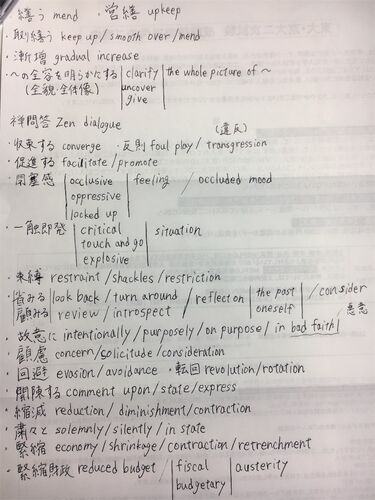 繕う mend ・営繕 upkeep
・取り繕う keep up / smooth over / mend
・漸増 gradual increase
・への全容を明らかにする | clarify | the whole picture of 〜
(全貌・全体像) | uncover
give
禅問答 Zen dialogue
(違反)
・収束する converge ・反則 foul play / transgression
・促進する facilitate / promote
・閉塞感 | occlusive | feeling / occluded mood
oppressive
locked up
・一触即発 | critical | situation
touch and go
explosive
・束縛 restraint / shackles / restriction
・省みる | look back / turn around / reflect on | the past / consider
顧みる | review / introspect | oneself
悪意
・故意に intentionally / purposely / on purpose / in bad faith
・顧慮 concern / solicitude / consideration
・回避 evasion / avoidance ・転回 revolution / rotation
・開陳する comment upon / state / express
・縮減 reduction / diminishment / contraction
・粛々と solemnly / silently / in state
・緊縮 economy / shrinkage / contraction / retrenchment
・緊縮財政 reduced budget / | fiscal | austerity
budgetary